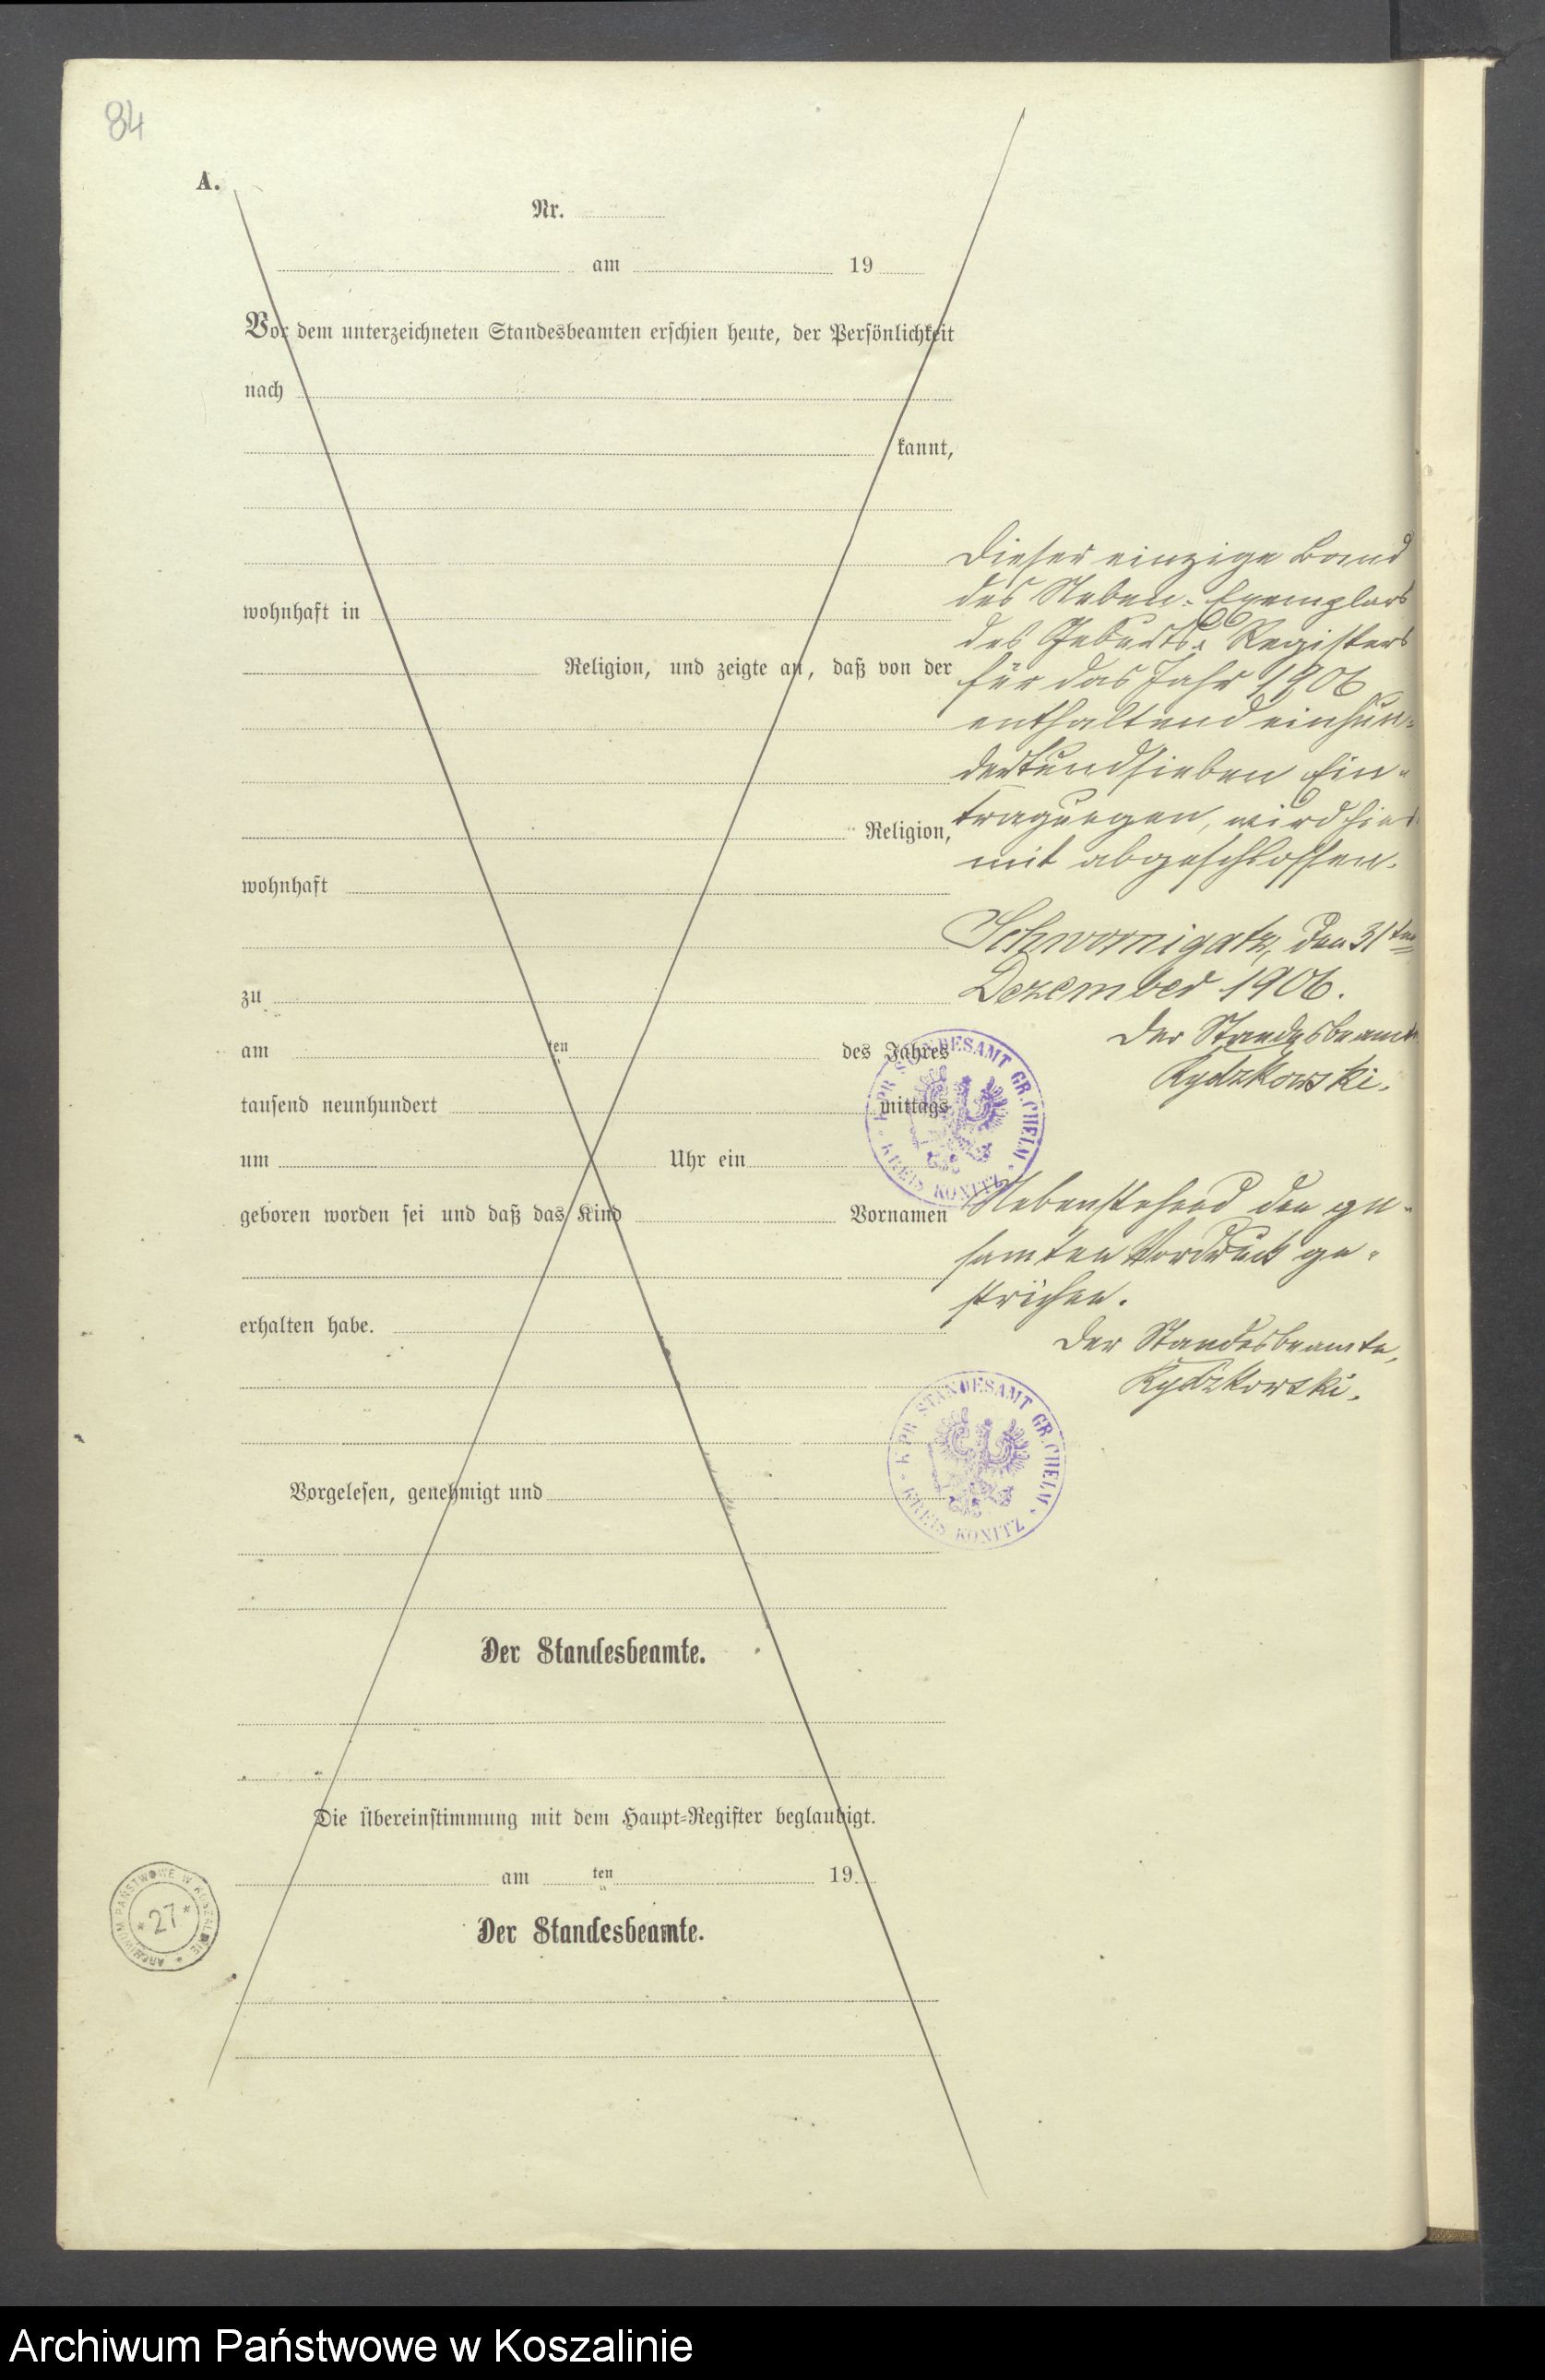 84
A.
Nr.
am 19
Vor dem unterzeichneten Standesbeamten erschien heute, der Persönlichkeit
nach
kannt,
wohnhaft in
Religion, und zeigte an, daß von der
Religion,
wohnhaft
zu
am ten des Jahres
tausend neunhundert mittags
um Uhr ein
geboren worden sei und daß das Kind Vornamen
erhalten habe.
Vorgelesen, genehmigt und
Der Standesbeamte.
Die Übereinstimmung mit dem Haupt-Register beglaubigt.
am ten 19
Der Standesbeamte.
Dieser einzige Band
des Neben-Exemplars
des Geburts-Registers
für das Jahr 1906
enthaltend einhun-
dertundsieben Ein-
tragungen, wird hier
mit abgeschlossen.
Schwornigatz, den 31ten
Dezember 1906.
Der Standesbeamte
Rydzkowski.
K. PR. STANDESAMT GR. CHELM
KREIS KONITZ
Nebenstehend den ge-
samten Vordruck ge-
strichen.
Der Standesbeamte,
Rydzkowski.
K. PR. STANDESAMT GR. CHELM
KREIS KONITZ
ARCHIWUM PAŃSTWOWE W KOSZALINIE
* 27 *
Archiwum Państwowe w Koszalinie